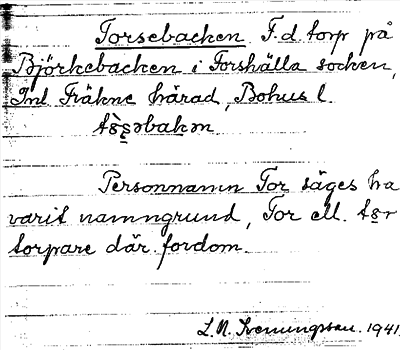 Torsebacken F.d. torp på
Björkebacken i Forshälla socken,
Inl. Fräkne härad, Bohus l.
Personnamn Tor säges ha
varit namngrund, Tor ell.
torpare där fordom.
L. N. Svenungsson. 1941.